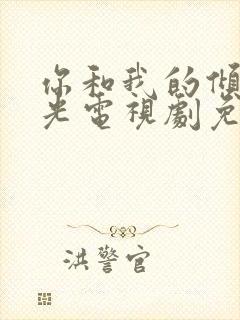 你和我的傾
光電視劇免
洪警官